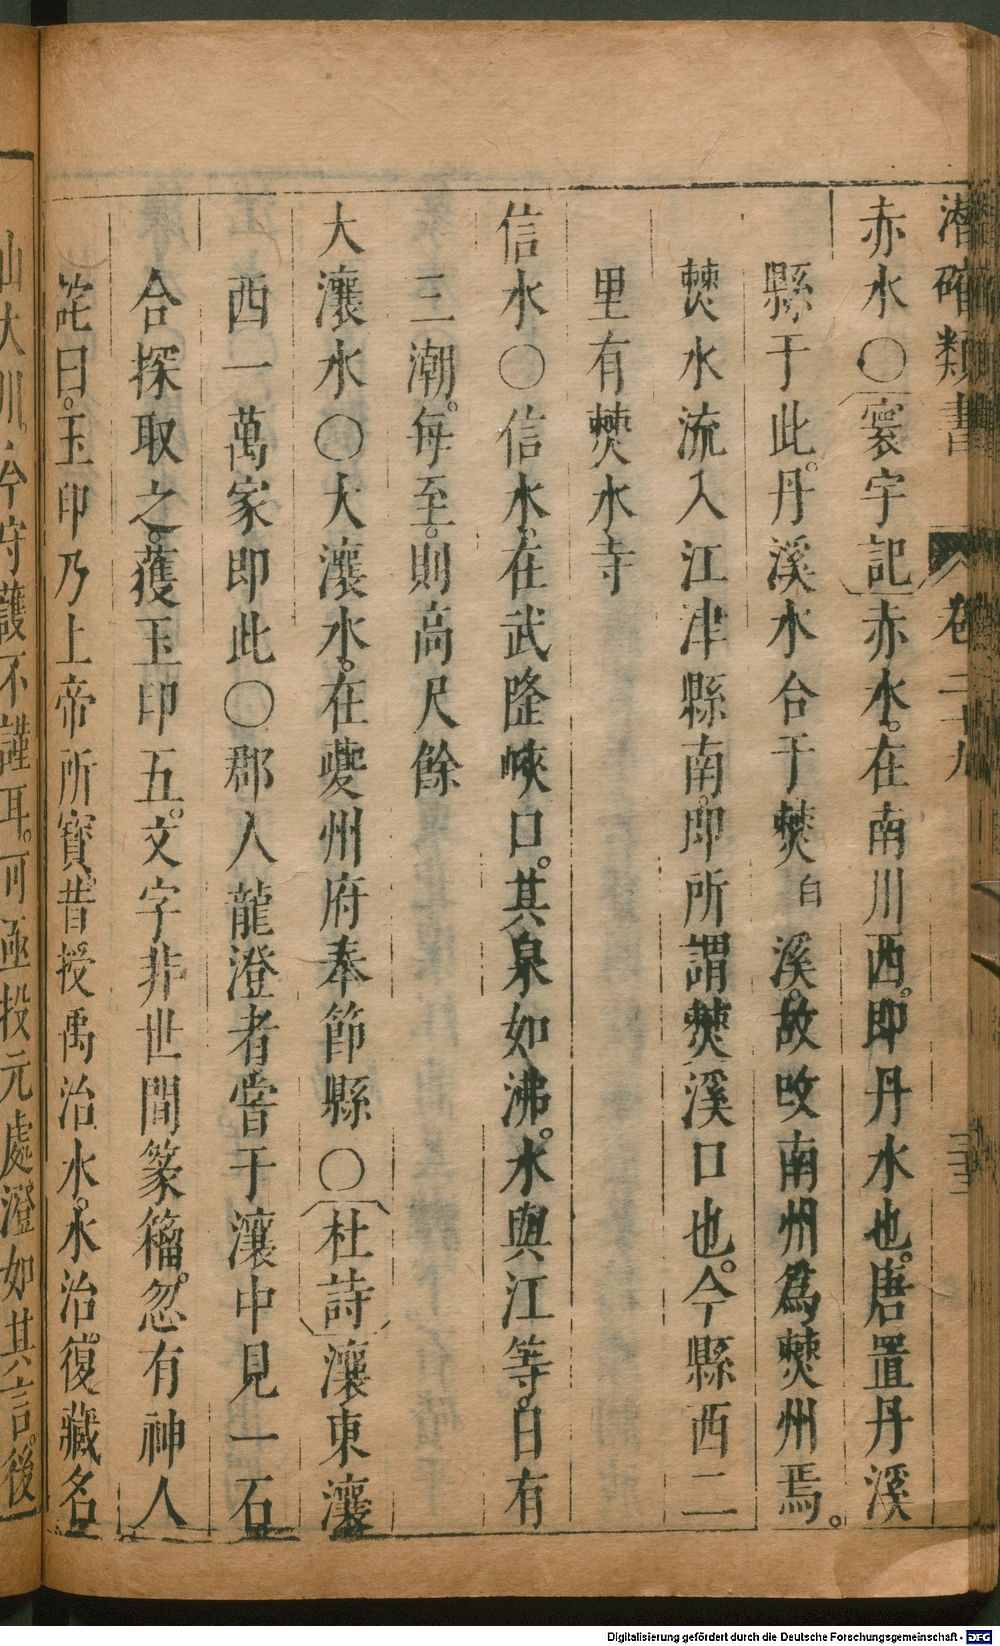 潛確類書　卷二十九
赤水〇〔寰宇記〕赤水。在南川西。即丹水也。唐置丹溪
縣于此。丹溪水合于僰白溪。故改南州爲僰州焉。
僰水流入江津縣南。即所謂僰溪口也。今縣西二
里有僰水寺
信水〇信水。在武隆峽口。其泉如沸。水與江等。日有
三潮。每至。則高尺餘
大瀼水〇大瀼水。在夔州府奉節縣〇〔杜詩〕瀼東瀼
西一萬家即此〇郡人龍澄者嘗于瀼中見一石
合探取之。獲玉印五。文字非世間篆籀。忽有神人
詫曰。玉印乃上帝所寶。昔授禹治水。水治復藏名
山大川。今守護不謹耳。可亟投元處澄如其言。後
Digitalisierung gefördert durch die Deutsche Forschungsgemeinschaft - DFG